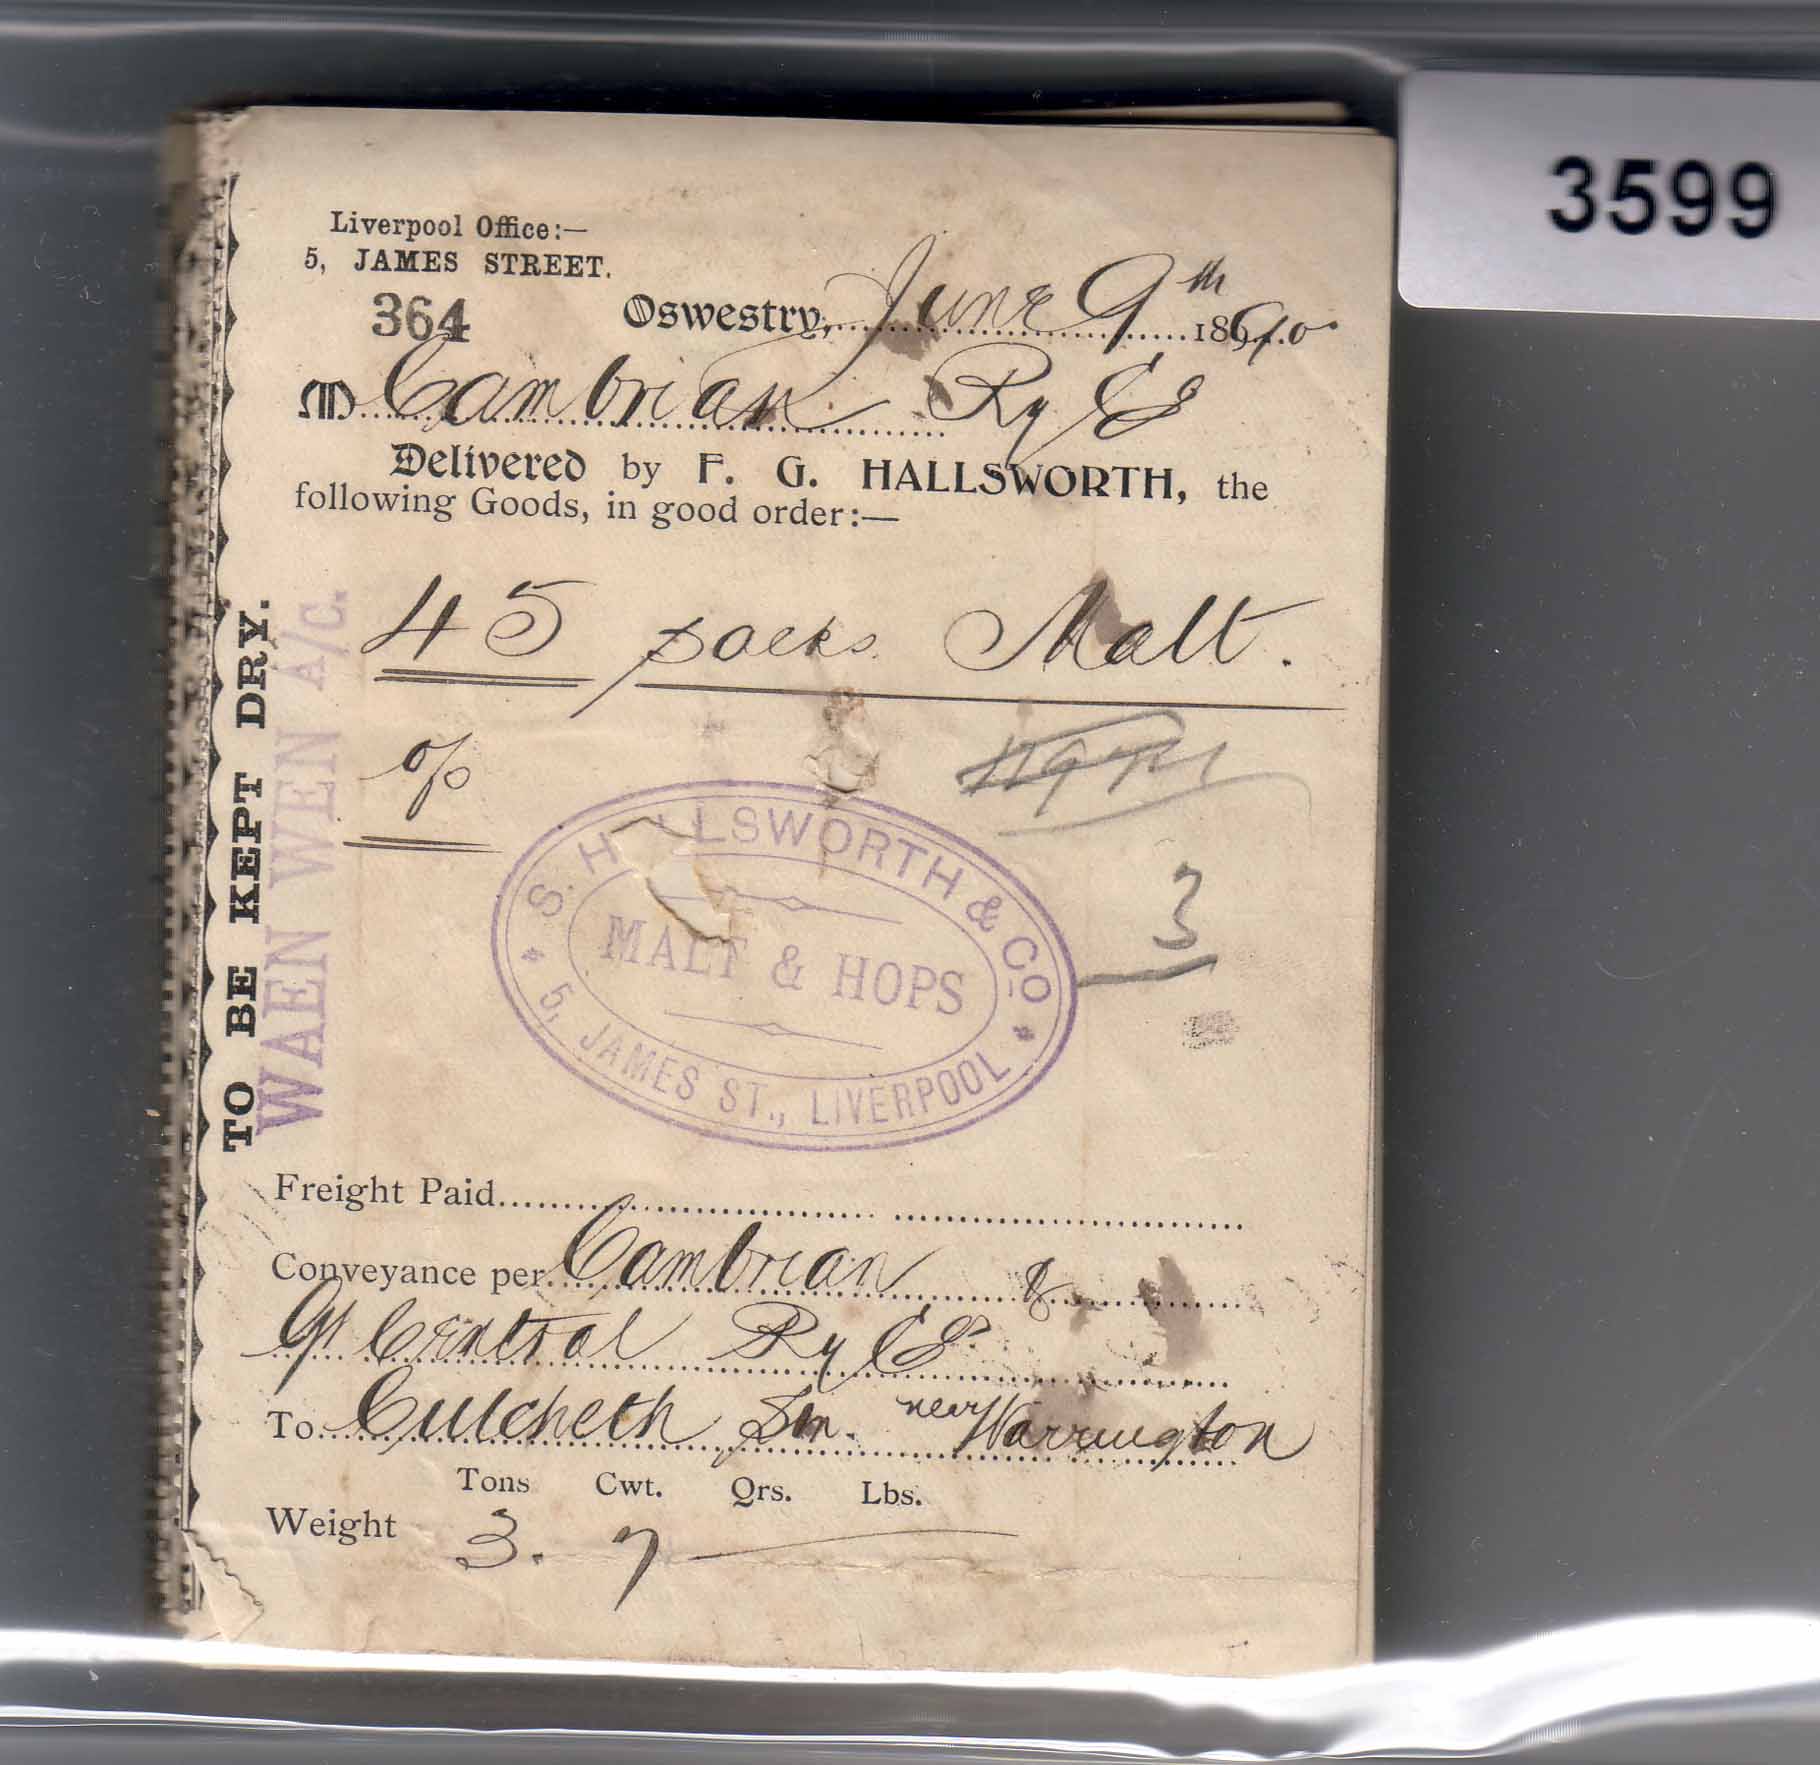 3599
Liverpool Office:—
5, JAMES STREET.
364 Oswestry, June 9th 18
M Cambrian Ry Co
Delivered by F. G. HALLSWORTH, the
following Goods, in good order:—
45 packs Malt.
o/o
3
S. HALLSWORTH & CO
MALT & HOPS
5, JAMES ST., LIVERPOOL
TO BE KEPT DRY.
WAEN WEN A/c.
Freight Paid
Conveyance per Cambrian &
Gt Central Ry Co
To Culcheth Stn. near Warrington
Tons Cwt. Qrs. Lbs.
Weight 3. 7